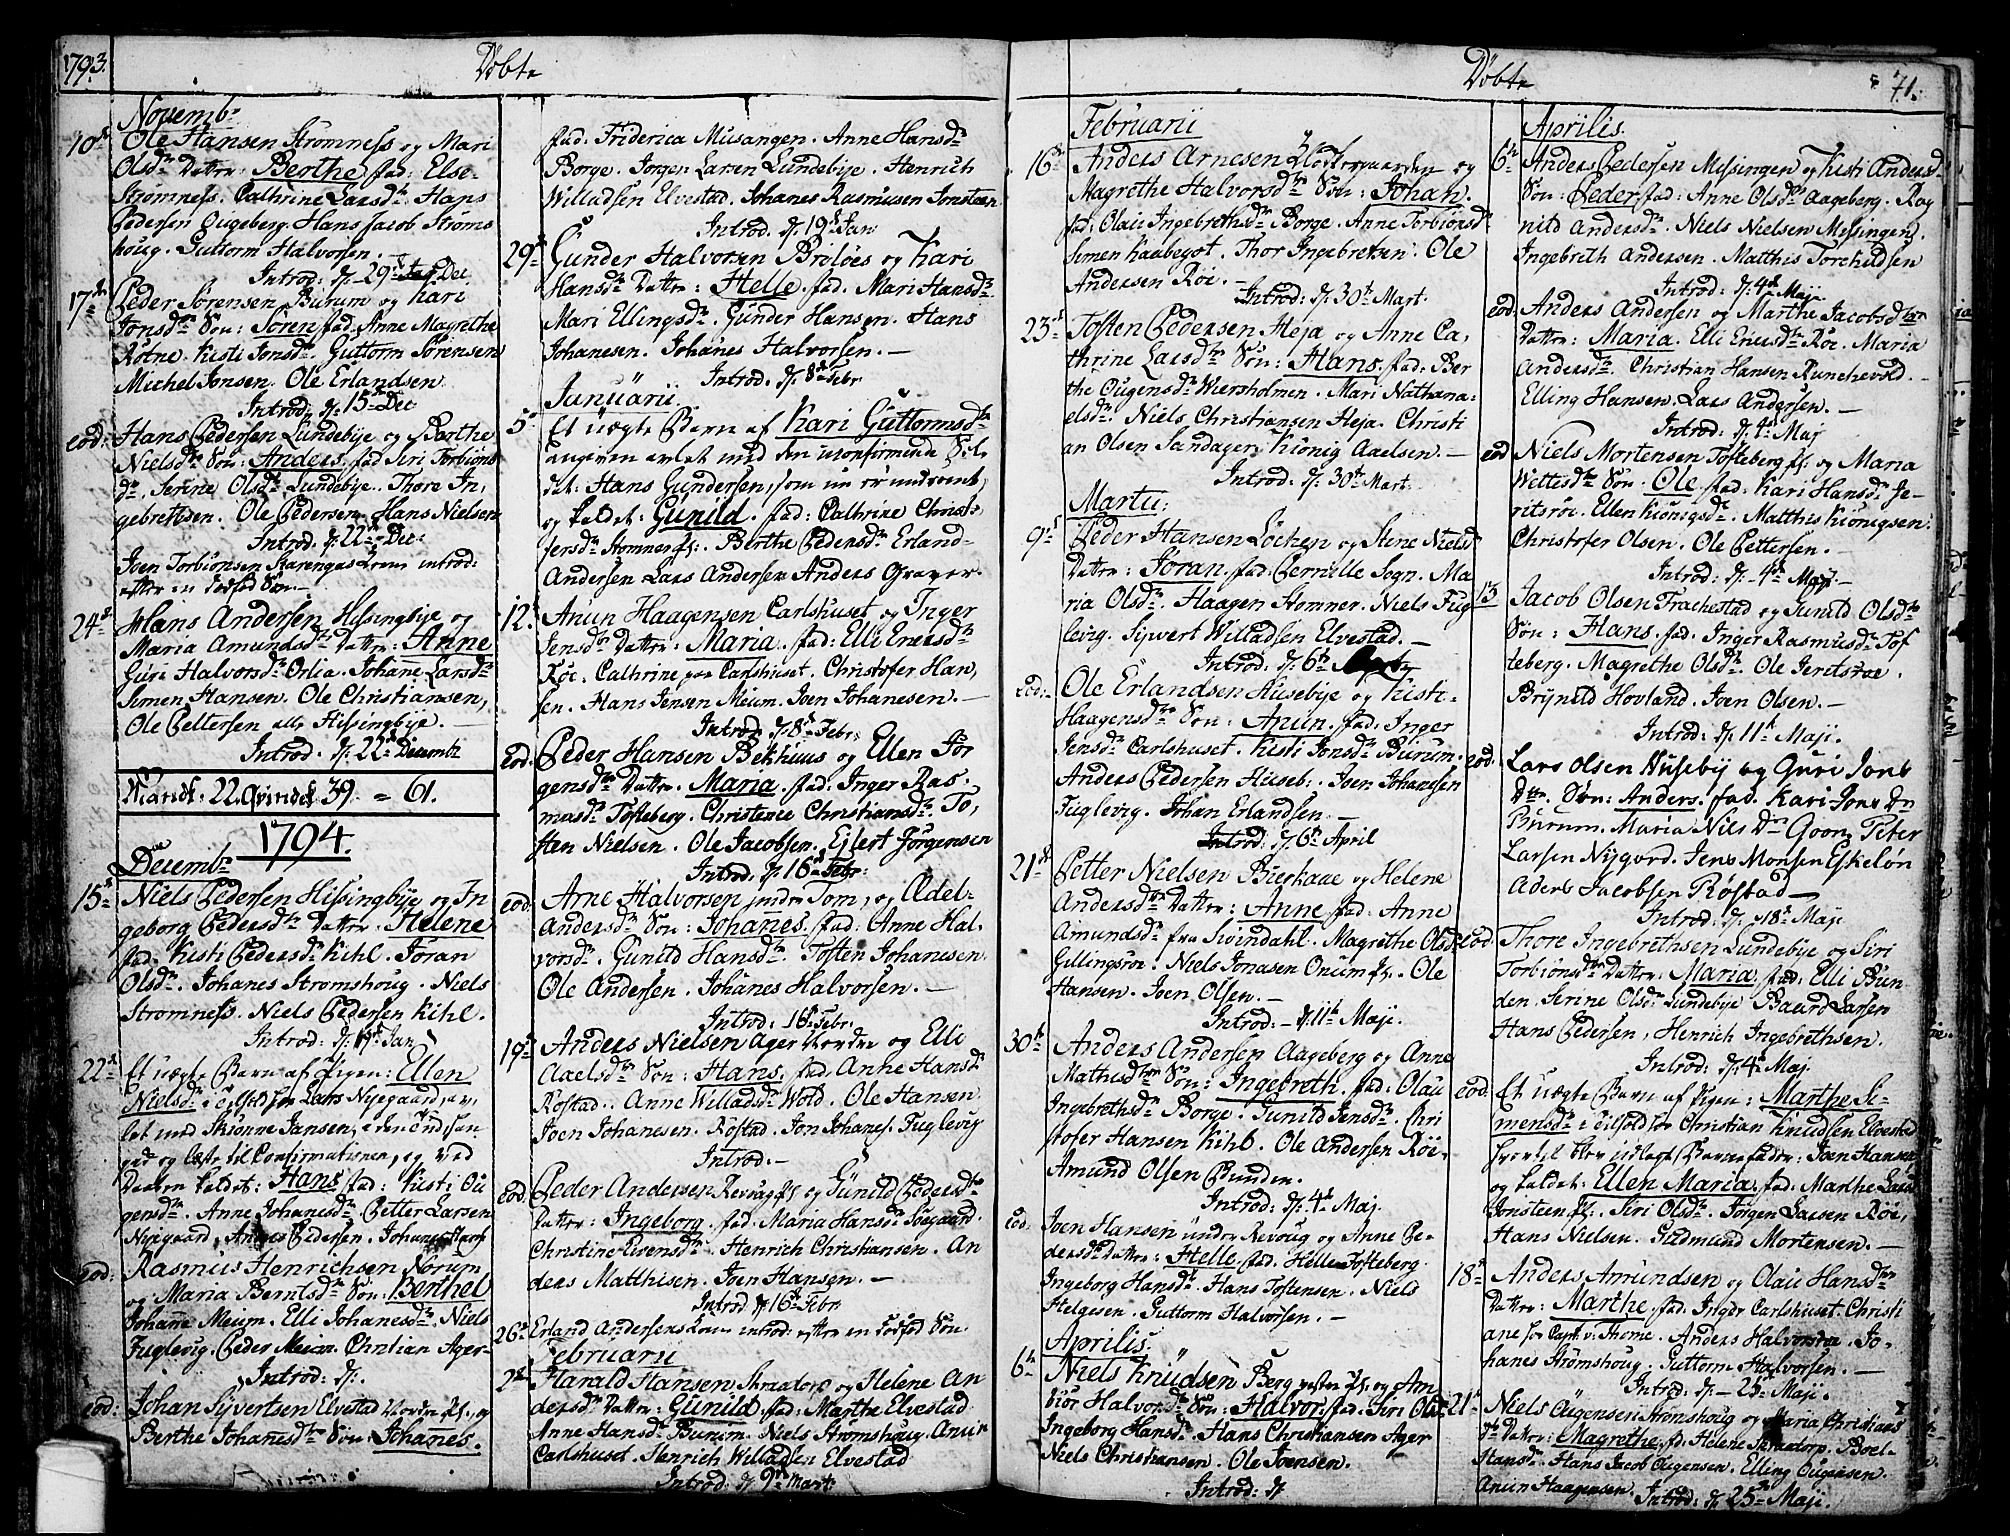 1793.
Döbte
Novembr
10de Ole Hansen Strömness og Mari
Olsdr Datter: Berthe fad: Else
Strömness. Cathrine Larsdr. Hans
Pedersen Ougeberg. Hans Jacob Ströms
houg. Guttorm Halvorsen.
Introd: d: 29de Dec
17de Peder Sörensen Burum og Kari
Jonsdr Sön: Sören fad: Anne Magrethe
Rotne. Kisti Jonsdr. Guttorm Sörensen
Michel Jonsen. Ole Erlandsen
Introd: d: 15de Dec
eod: Hans Pedersen Lundebije og Berthe
Nielsdr Sön: Anders. fad Siri Torbiöns
dr. Serine Olsdr Lundebije. Thore In,
gebrethsen. Ole Pedersen. Hans Nielsen
Introd: d: 22de Dec:
Joen Torbiönsen Karengas Kone introd:
efter en dödfød Sön.
24de Hans Andersen Hissingbije og
Maria Amundsdr Datter: Anne
Guri Halvorsdr Orlia. Johane Larsdr
Simen Hansen. Ole Christiansen,
Ole Pettersen alle Hissingbije.
Introd: d: 22de Decembr
Mandk: 22. Qvindek 39. = 61.
1794.
Decembr
15de Niels Pedersen Hissingbije og In
geborg Pedersdr Datter: Helene
fad: Kisti Pedersdr Kihl. Joran
Olsdr. Johanes Stromshoug. Niels
Stromness. Niels Pedersen Kihl.
Introd: d: 19de Jan
22de Et uægte Barn af Pigen: Ellen
Nielsdr i eftfdf for Lars Nyegaard, av,
let med Skionne Jansen,
gad og læste til Confirmationen, og ved
Daaben kaldet: Hans fad: Kisti Ou
gensdr. Anne Johanesdr Petter Larsen
Nyegaard, Anders Pedersen. Johanes
eod: Rasmus Henrichsen Norum
og Maria Berntsdr Sön: Benthel
Johane Meium. Elli Johanesdr. Niels
Fuglevig. Peder Meium. Christian Ager
Introd: d:
eod: Johan Syvertsen Elvestad Nordre og
Berthe Johanesdr Sön: Johanes.
fad: Friderica Musangen. Anne Hansdr
Borge. Jörgen Larsen Lundebije. Henrich
Willadsen Elvestad. Johanes Rasmusen Jonsteen
Introd. d: 19de Jan
29de Gunder Halvorsen Briloes og Kari
Hansdr Datter: Helle. fad. Mari Hansdr
Mari Ellingsdr. Gunder Hansen. Hans
Johanesen. Johanes Halvorsen.
Introd. d: 8de Febr
Januarii
5te Et uægte Barn af Kari Guttormsdr
angiven avlet med den uconfirmerede Sol,
dat: Hans Gundersen, som nu er undvent,
og kaldet: Gunild. fad: Cathrine Christ,
fersdr Homnerss: Berthe Pedersdr Erland
Andersen Lars Andersen Anders Graver.
12te Anun Haagensen Carlshuset og Inger
Jensdr Datter: Maria. fad: Elli Enersdr
Röe. Cathrine paa Carlshuset. Christofer Han,
sen. Hans Jensen Meum. Joen Johanesen.
Introd d: 8de Febr:
eod: Peder Hansen Bekhuus og Ellen Jör
gensdr Datter: Maria fad. Inger Ras.
musdr Tofteberg. Christence Christiansdr. To,
sten Nielsen. Ole Jacobsen. Ejlert Jörgensen
Introd. d: 16de Febr:
eod: Arne Halvorsen nedre Tom, og Edel
Andersdr Sön: Johanes. fad: Anne Hal,
vorsdr. Gunild Hansdr. Tosten Johanesen.
Ole Andersen. Johanes Halvorsen.
Introd: 16de Febr:
19de Anders Nielsen Ager Nordre og Elli
Aaelsdr Sön: Hans. fad Anne Hansdr
Rostad. Anne Willadsdr Wold. Ole Hansen.
Joen Johanesen. Rostad. Jon Johanes. Fuglevig
Introd:
eod: Peder Andersen Revoug og Gunild Pedersdr
Datter: Ingeborg. fad: Maria Hansdr Soegaard.
Christine Evensdr. Henrich Christiansen. An
ders Matthisen. Joen Hansen.
Introd d: 16de Febr
26de Erland Andersens Kone introd: efter en dödfød Sön.
Februarii
2den Harald Hansen Skradorp og Helene An
dersdr Datter: Gunild. fad: Marthe Elvestad
Anne Hansdr Burum. Niels Stromshoug. Anun
Carlshuset. Henrich Willadsen Elvestad
Introd: d: 9de Mart:
Döbte
71.
Februarii
16de Anders Arnesen Klostergaarden og
Magrethe Halvorsdr Sön: Johan.
fad: Olau Ingebrethsdr Borge. Anne Torbiönsdr
Simen Kaabegot. Thor Ingebretsen. Ole
Andersen Röe.
Introd: d: 30te Mart.
23de Tosten Pedersen Heja og Anne Ca,
thrine Larsdr Sön: Hans. fad: Ber
the Ougensdr Wiersholmen. Mari Nathana
elsdr. Niels Christiansen Heja. Christi
an Olsen Sandager. Kionig Aaelsen.
Introd: d: 30te Mart:
Martii:
9de Peder Hansen Löchen og Stine Nielsdr
Datter: Joran. fad: Pernille Sogn. Ma
ria Olsdr. Haagen Homner. Niels Fug
levig. Syvert Willadsen Elvestad.
Introd: d: 6te
eod: Ole Erlandsen Husebije og Kisti
Haagensdr Sön: Anun. fad: Inger
Jensdr Carlshuset. Kisti Jonsdr Burum.
Anders Pedersen Huseb: Joen Johanesen
Fuglevig. Johan Erlandsen.
Introd: d: 6te April
21de Petter Nielsen Bierkaae og Helene
Andersdr Datter: Anne fad: Anne
Amundsdr fra Svindahl. Magrethe Olsdr
Gillingsröe. Niels Jonasen Onum. Ole
Hansen. Joen Olsen.
Introd: d: 11te Maji.
30te Anders Andersen Aageberg og Anne
Mathisdr Sön: Ingebreth. fad: Olau
Ingebrethsdr Borge. Gunild Jensdr. Chri
stofer Hansen Kihl. Ole Andersen Röe.
Amund Olsen Bunden.
Introd: d: 4de Maj.
eod: Joen Hansen undre Revoug og Anne Pe
dersdr Datter: Helle. fad: Helle Tofteberg.
Ingeborg Hansdr. Hans Tostensen. Niels
Helgesen. Guttorm Halvorsen.
Aprilis.
6te Niels Knudsen Berg og Am
biör Halvorsdr Sön: Halvor. fad: Siri Olsdr
Ingeborg Hansdr. Hans Christiansen Ager
Niels Christiansen. Ole Joensen.
Introd: d:
Aprilis.
6te Anders Pedersen Messingen og Kisti Andersdr
Sön: Peder. fad: Anne Olsdr Aageberg. Rag
nild Andersdr. Niels Nielsen Messingen.
Ingebreth Andersen. Matthis Torchildsen
Introd: d: 4de Maji
eod: Anders Andersen og Marthe Jacobsdr
Datter: Maria. Elli Enersdr Röe. Maria
Andersdr. Christian Hansen Runchevold.
Elling Hansen. Lars Andersen.
Introd: d: 4de Maj
eod Niels Mortensen Tofteberg og Maria
Wettesdr Sön: Ole. fad: Kari Hansdr Je
ritsröe. Ellen Kionigsdr. Matthis Kionigsen.
Christofer Olsen. Ole Pettersen.
Introd: d: 4de Maj.
13 Jacob Olsen Frachestad og Gunild Olsdr
Sön: Hans. fad. Inger Rasmusdr Tof
teberg. Magrethe Olsdr. Ole Jeritsröe.
Brynild Hovland. Joen Olsen.
Introd: d: 11te Maji.
eod. Lars Olsen Huseby og Guri Jons
Dtr. Sön: Anders. fad. Kari Jons Dr
Burum. Maria Nils Dr Goon. Peter
Larsen Nygord. Jens Monsen Eskelön
Aders Jacobsen Röstad
Introd: d: 18de Maji
eod. Thore Ingebrethsen Lundebije og Siri
Torbiönsdr Datter: Maria. fad: Elli Bun
den. Serine Olsdr Lundebije Baard Larsen
Hans Pedersen, Henrich Ingebrethsen.
Introd: d: 4de Maj.
eod. Et uægte Barn af Pigen: Marthe Si
mensdr i for Christian Knudsen Elvestad
hvortil blev udlagt Barnefader: Joen Hansen,
og kaldet: Ellen Maria. fad: Marthe Lars
Jonsteen. Siri Olsdr. Jörgen Larsen Röe,
Hans Nielsen. Gudmund Mortensen.
18de Anders Amundsen og Olau Hansdr
Datter: Marthe. fad: Inger Carlshuset. Christi
ane for Capt: v: Thome. Anders Halvorsröe. Jo
hanes Strömshoug. Guttorm Halvorsen.
Introd: d: 25de Maji.
21de Niels Ougensen Strömshoug og Maria Christians
dr Datter: Magrethe. fd: Helene Skradorp. Boel
Hansdr. Hans Jacob Ougensen. Elling Ougensen.
Anun Haagensen. Introd: d: 25de Maji.